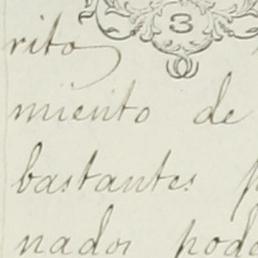 3
rito
miento de
bastantes p
nados pode